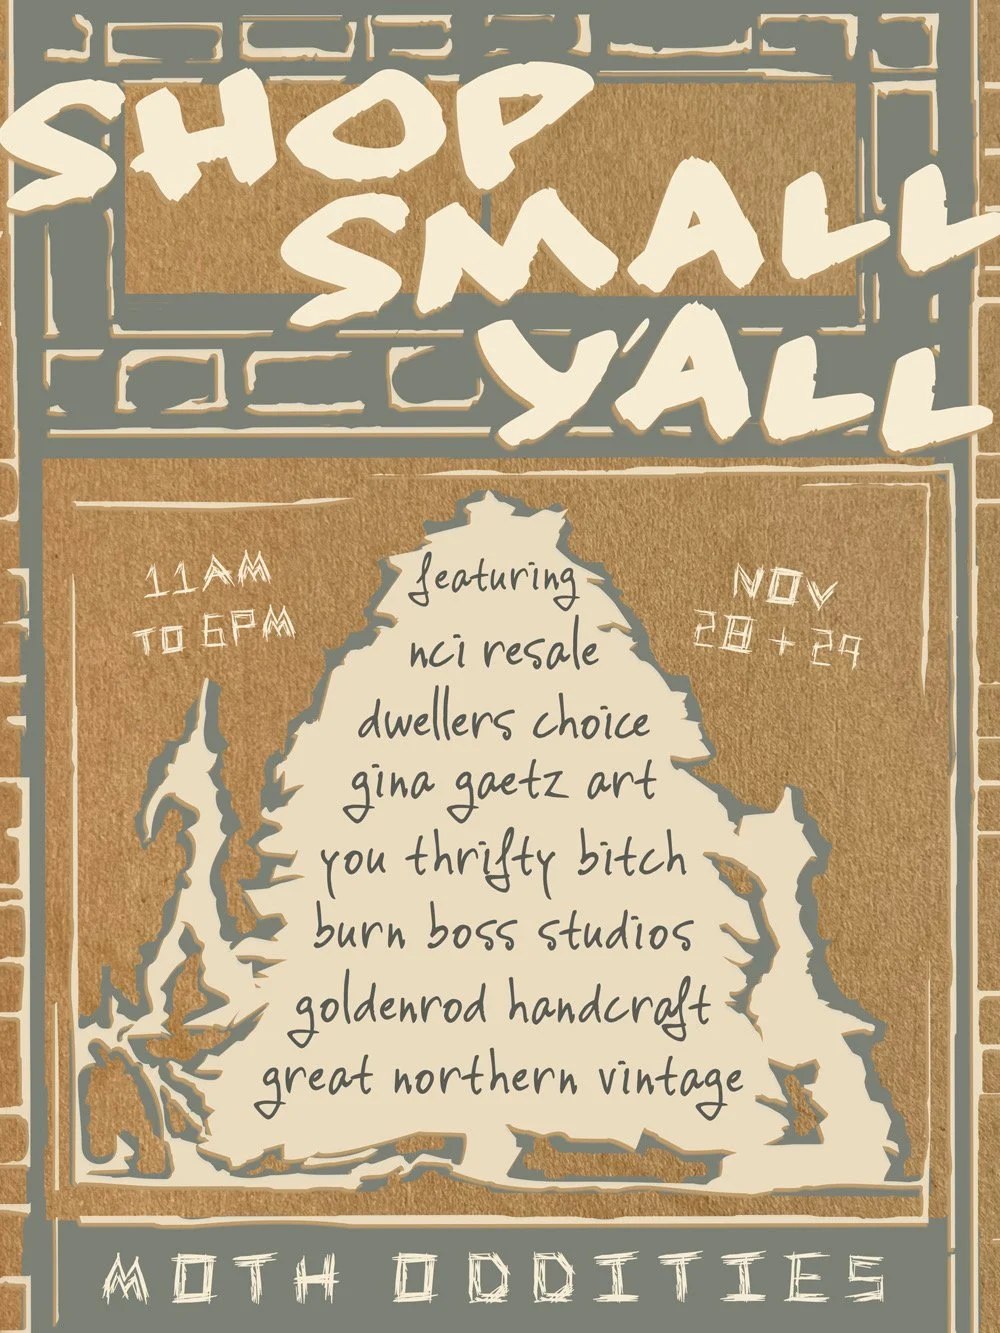 SHOP
SMALL
Y'ALL
11AM
TO 6PM
NOV
28 + 29
featuring
nci resale
dwellers choice
gina gaetz art
you thrifty bitch
burn boss studios
goldenrod handcraft
great northern vintage
MOTH ODDITIES